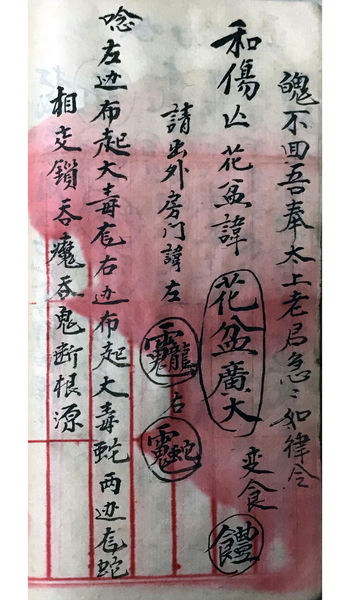 魄不回吾奉太上老君急〻如律令
和傷亾花盆諱花盆廣大变食
請出外房门諱左右
唸左边布起大毒龙右边布起大毒蛇两边龙蛇
相交鎖吞魔吞鬼断根源